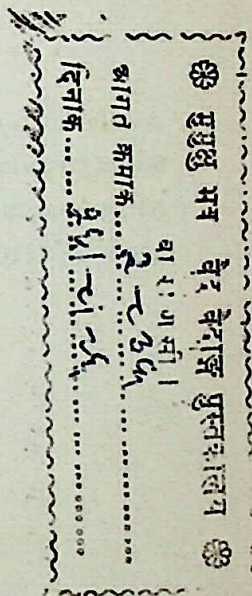 ❀ मुमुक्षु भवन वेद वेदाङ्ग पुस्तकालय ❀
वा रा ण सी ।
आगत क्रमाक.....................
दिनाक.....................